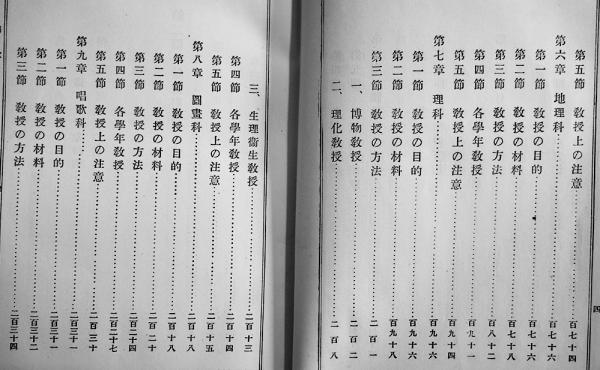 四
第五節 敎授上の注意……百七十四
第六章 地理科……百七十六
第一節 敎授の目的……百七十六
第二節 敎授の材料……百七十八
第三節 敎授の方法……百八十二
第四節 各學年敎授……百九十一
第五節 敎授上の注意……百九十四
第七章 理科……百九十六
第一節 敎授の目的……百九十六
第二節 敎授の材料……百九十八
第三節 敎授の方法……二百一
一、博物敎授……二百二
二、理化敎授……二百八
三、生理衞生敎授……二百十三
第四節 各學年敎授……二百十四
第五節 敎授上の注意……二百十五
第八章 圖畫科……二百十八
第一節 敎授の目的……二百十八
第二節 敎授の材料……二百二十
第三節 敎授の方法……
第四節 各學年敎授……二百二十七
第五節 敎授上の注意……二百三十
第九章 唱歌科……二百三十一
第一節 敎授の目的……二百三十一
第二節 敎授の材料……二百三十二
第三節 敎授の方法……二百三十四